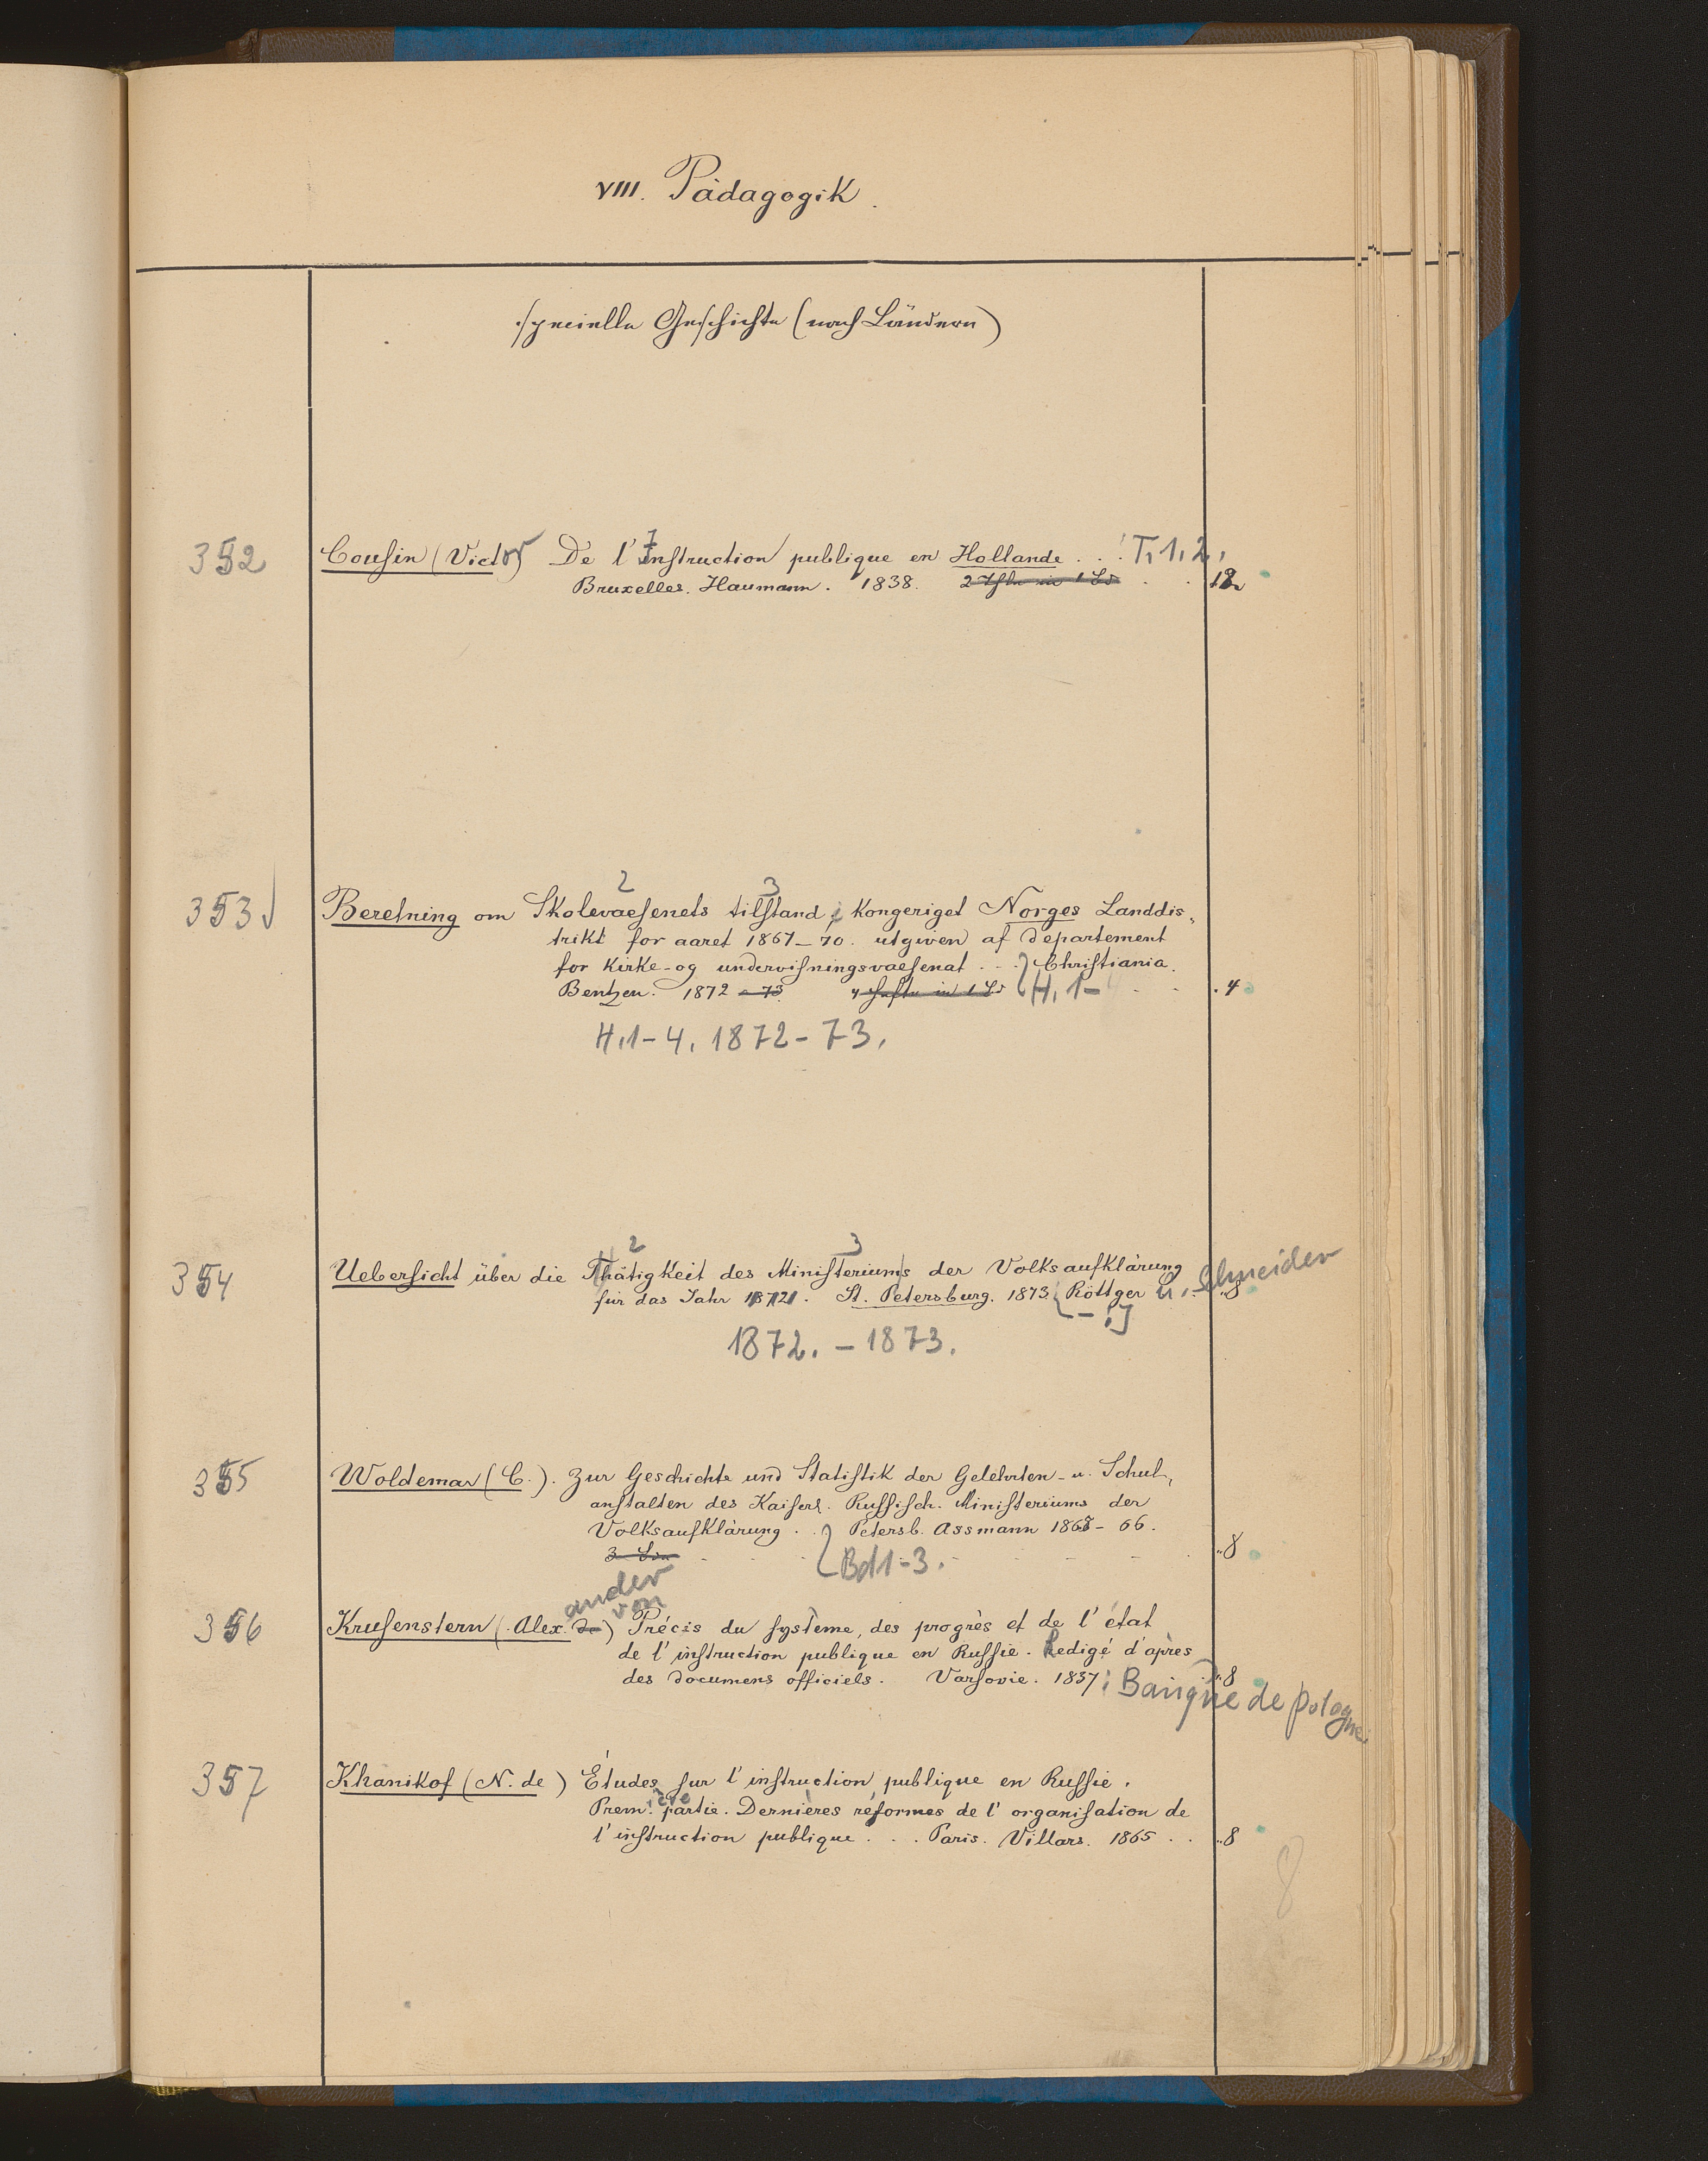 VIII. Pädagogik.
specielle Geschichte (nach Ländern)
352 Cousin (Victor) De l'Instruction publique en Hollande . . . T. 1. 2.
Bruxelles. Haumann. 1838. 2 Thle in 1 Bd . . 12
2 3
353 Beretning om Skolevaesenets tilstand i Kongeriget Norges Landdis-
trikt for aaret 1867-70. utgiven af departement
for Kirke-og undervisningsvaesenat . . . Christiania.
Bentzen. 1872 - 73 4 Hefte in 1 Bd H. 1- . . . 4
H. 1-4. 1872-73.
2 3
354 Uebersicht über die Thätigkeit des Ministeriums der Volksaufklärung
für das Jahr 1872. St. Petersburg. 1873. Röttger u. Schneider "8
[ - . ]
1872. - 1873.
355 Woldemar (C.). Zur Geschichte und Statistik der Gelehrten- u. Schul-
anstalten des Kaiserl. Russisch. Ministeriums der
Volksaufklärung . . Petersb. Assmann 1865-66.
3 Bde . . . Bd 1-3. . . . "8
ander von
356 Krusenstern (Alex. de) Précis du système, des progrès et de l'état
de l'instruction publique en Russie. Redigé d'après
des documens officiels. Varsovie. 1837; "8
Banque de Pologne.
357 Khanikof (N. de) Études sur l'instruction publique en Russie.
Prem. ière partie. Dernières réformes de l'organisation de
l'instruction publique . . . Paris. Villars. 1865 . . "8
8